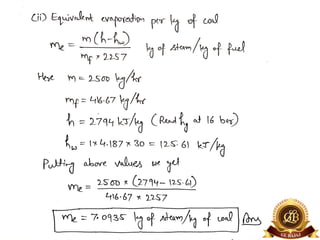 (ii) Equivalent evaporation per kg of coal
me = m(h-hw) / mf × 2257 kg of steam/kg of fuel
Here m = 2500 kg/hr
mf = 416.67 kg/hr
h = 2794 kJ/kg (Read hg at 16 bar)
hw = 1×4.187×30 = 125.61 kJ/kg
Putting above values we get
me = 2500×(2794-125.61) / 416.67 × 2257
me = 7.0935 kg of steam/kg of coal Ans